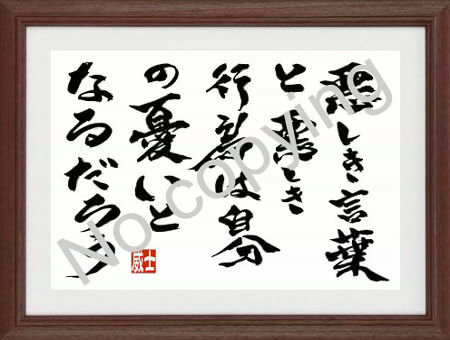 悪しき言葉
と悪しき
行為は自分
の憂いと
なるだろう
威士
No copying